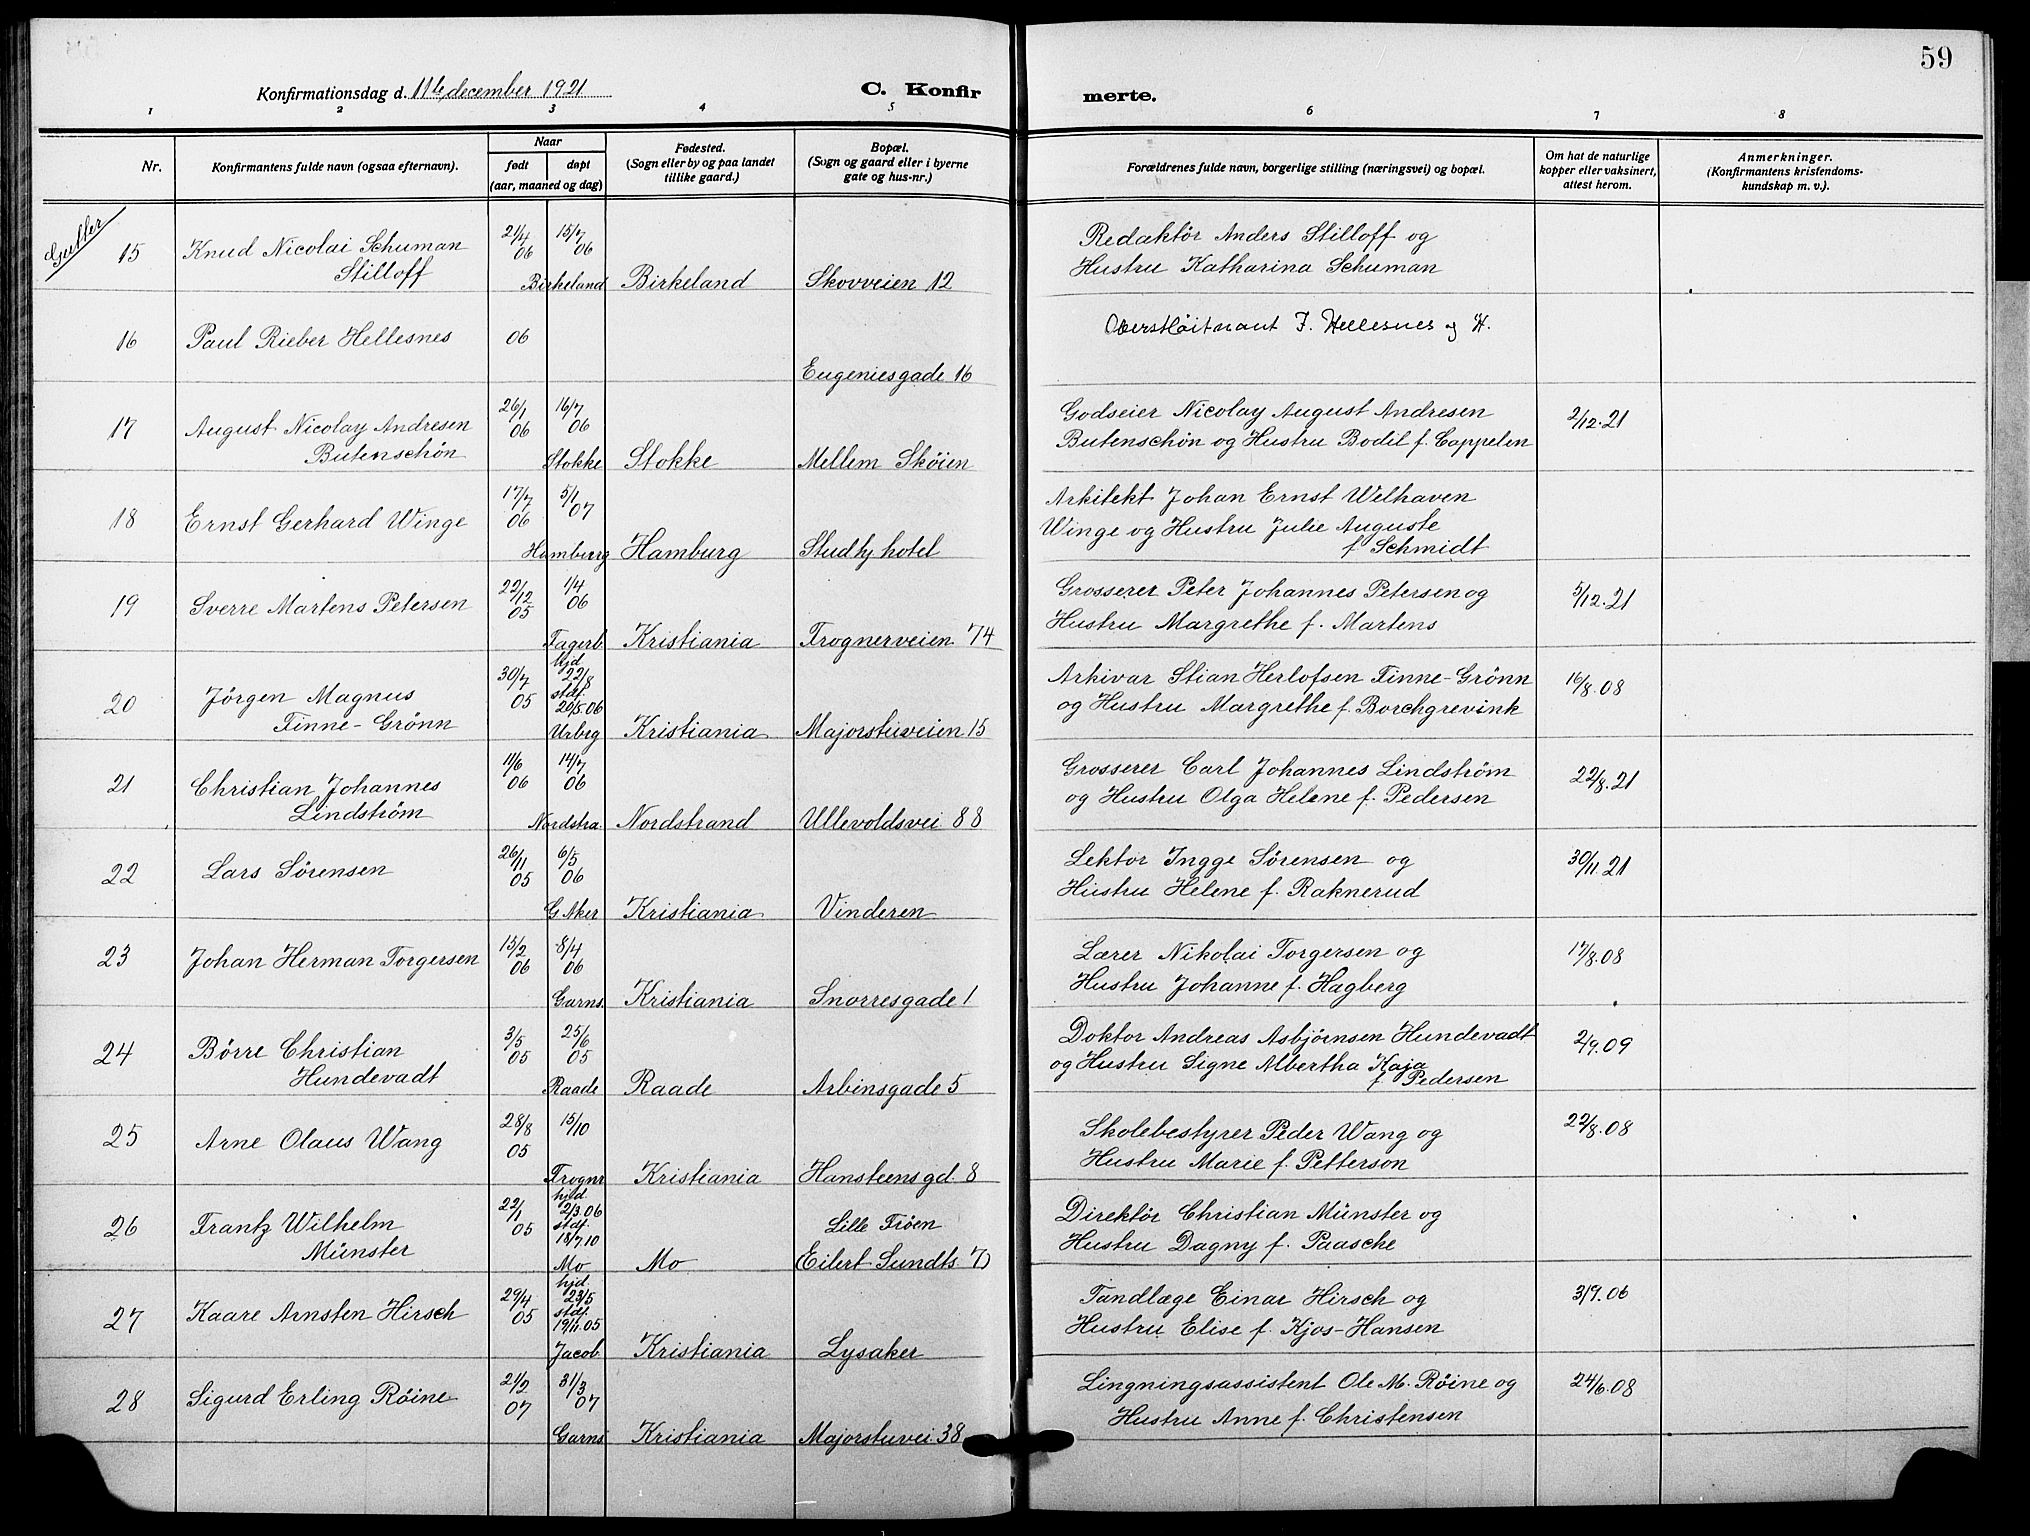 59
Konfirmationsdag d. 11te december 1921
C. Konfir
merte.
1 2 3 4 5 6 7 8
Nr.
Konfirmantens fulde navn (ogsaa efternavn).
Naar
født
døpt
(aar, maaned og dag)
Fødested.
(Sogn eller by og paa landet
tillike gaard.)
Bopæl.
(Sogn og gaard eller i byerne
gate og hus-nr.)
Forældrenes fulde navn, borgerlige stilling (næringsvei) og bopæl.
Om hat de naturlige
kopper eller vaksinert,
attest herom.
Anmerkninger.
(Konfirmantens kristendoms-
kundskap m. v.).
Gutter
15 Knud Nicolai Schuman 21/4 06 15/7 06 Redaktör Anders Stilloff og
Stilloff Birkeland Birkeland Skovveien 12 Hustru Katharina Schuman
16 Paul Rieber Hellesnes 06 Oberstløitnant F. Hellesnes og H.
Eugeniesgade 16
17 August Nicolay Andresen 26/1 06 16/7 06 Godseier Nicolay August Andresen 2/12.21
Butenschön Stokke Stokke Mellem Sköien Butenschön og Hustru Bodil f. Cappelen
18 Ernst Gerhard Winge 17/7 06 5/1 07 Arkitekt Johan Ernst Welhaven
Winge og Hustru Julie Auguste
Hamburg Hamburg Studtyhotel f Schmidt
19 Sverre Martens Petersen 22/12 05 1/4 06 Grosserer Peter Johannes Petersen og 5/12.21
Fagerb. Kristiania Frognerveien 74 Hustru Margrethe f. Martens
20 Jörgen Magnus 30/7 05 hjd 22/8 stdf. 20/5.06 Arkivar Stian Herlofsen Finne-Grönn 16/8.08
Finne-Grönn Urbrg Kristiania Majorstuveien 15 og Hustru Margrethe f. Borchgrevink
21 Christian Johannes 11/6 06 14/7 06 Grosserer Carl Johannes Lindström 22/8.21
Lindström Nordstra. Nordstrand Ullevoldsvei. 88 og Hustru Olga Helene f. Pedersen
22 Lars Sörensen 26/11 05 6/5 06 Lektor Ingge Sörensen og 30/11.21
G Aker Kristiania Vinderen Hustru Helene f. Raknerud
23 Johan Herman Torgersen 15/2 06 8/4 06 Lærer Nikolai Torgersen og 17/8.08
Garns. Kristiania Snorresgade 1 Hustru Johanne f. Hagberg
24 Börre Christian 3/5 05 25/6 05 Doktor Andreas Asbjörnsen Hundevadt 2/9.09
Hundevadt og Hustru Signe Albertha Kaja
Raade Raade Arbinsgade 5 f Pedersen
25 Arne Olaus Wang 28/8 05 15/10 Skolebestyrer Peder Wang og 22/8.08
Frognr Kristiania Hansteensgd. 8 Hustru Marie f. Petterson
26 Frantz Wilhelm 22/1 05 hjd. 2/3.06 stdf. 18/7 10 Lille Fröen Direktör Christian Münster og
Münster Mo Mo (Eilert Sundts. 7) Hustru Dagny f. Paasche
27 Kaare Arnsten Hirsch 29/4 05 hjd. 23/5 stdf. 19/11.05 Tandlæge Einar Hirsch og 3/9.06
Jacob Kristiania Lysaker Hustru Elise f. Kjos-Hansen
28 Sigurd Erling Röine 21/2 07 31/3 07 Lingningsassistent Ole M. Röine og 24/6.08
Garns Kristiania Majorstuvei. 38 Hustru Anne f. Christensen